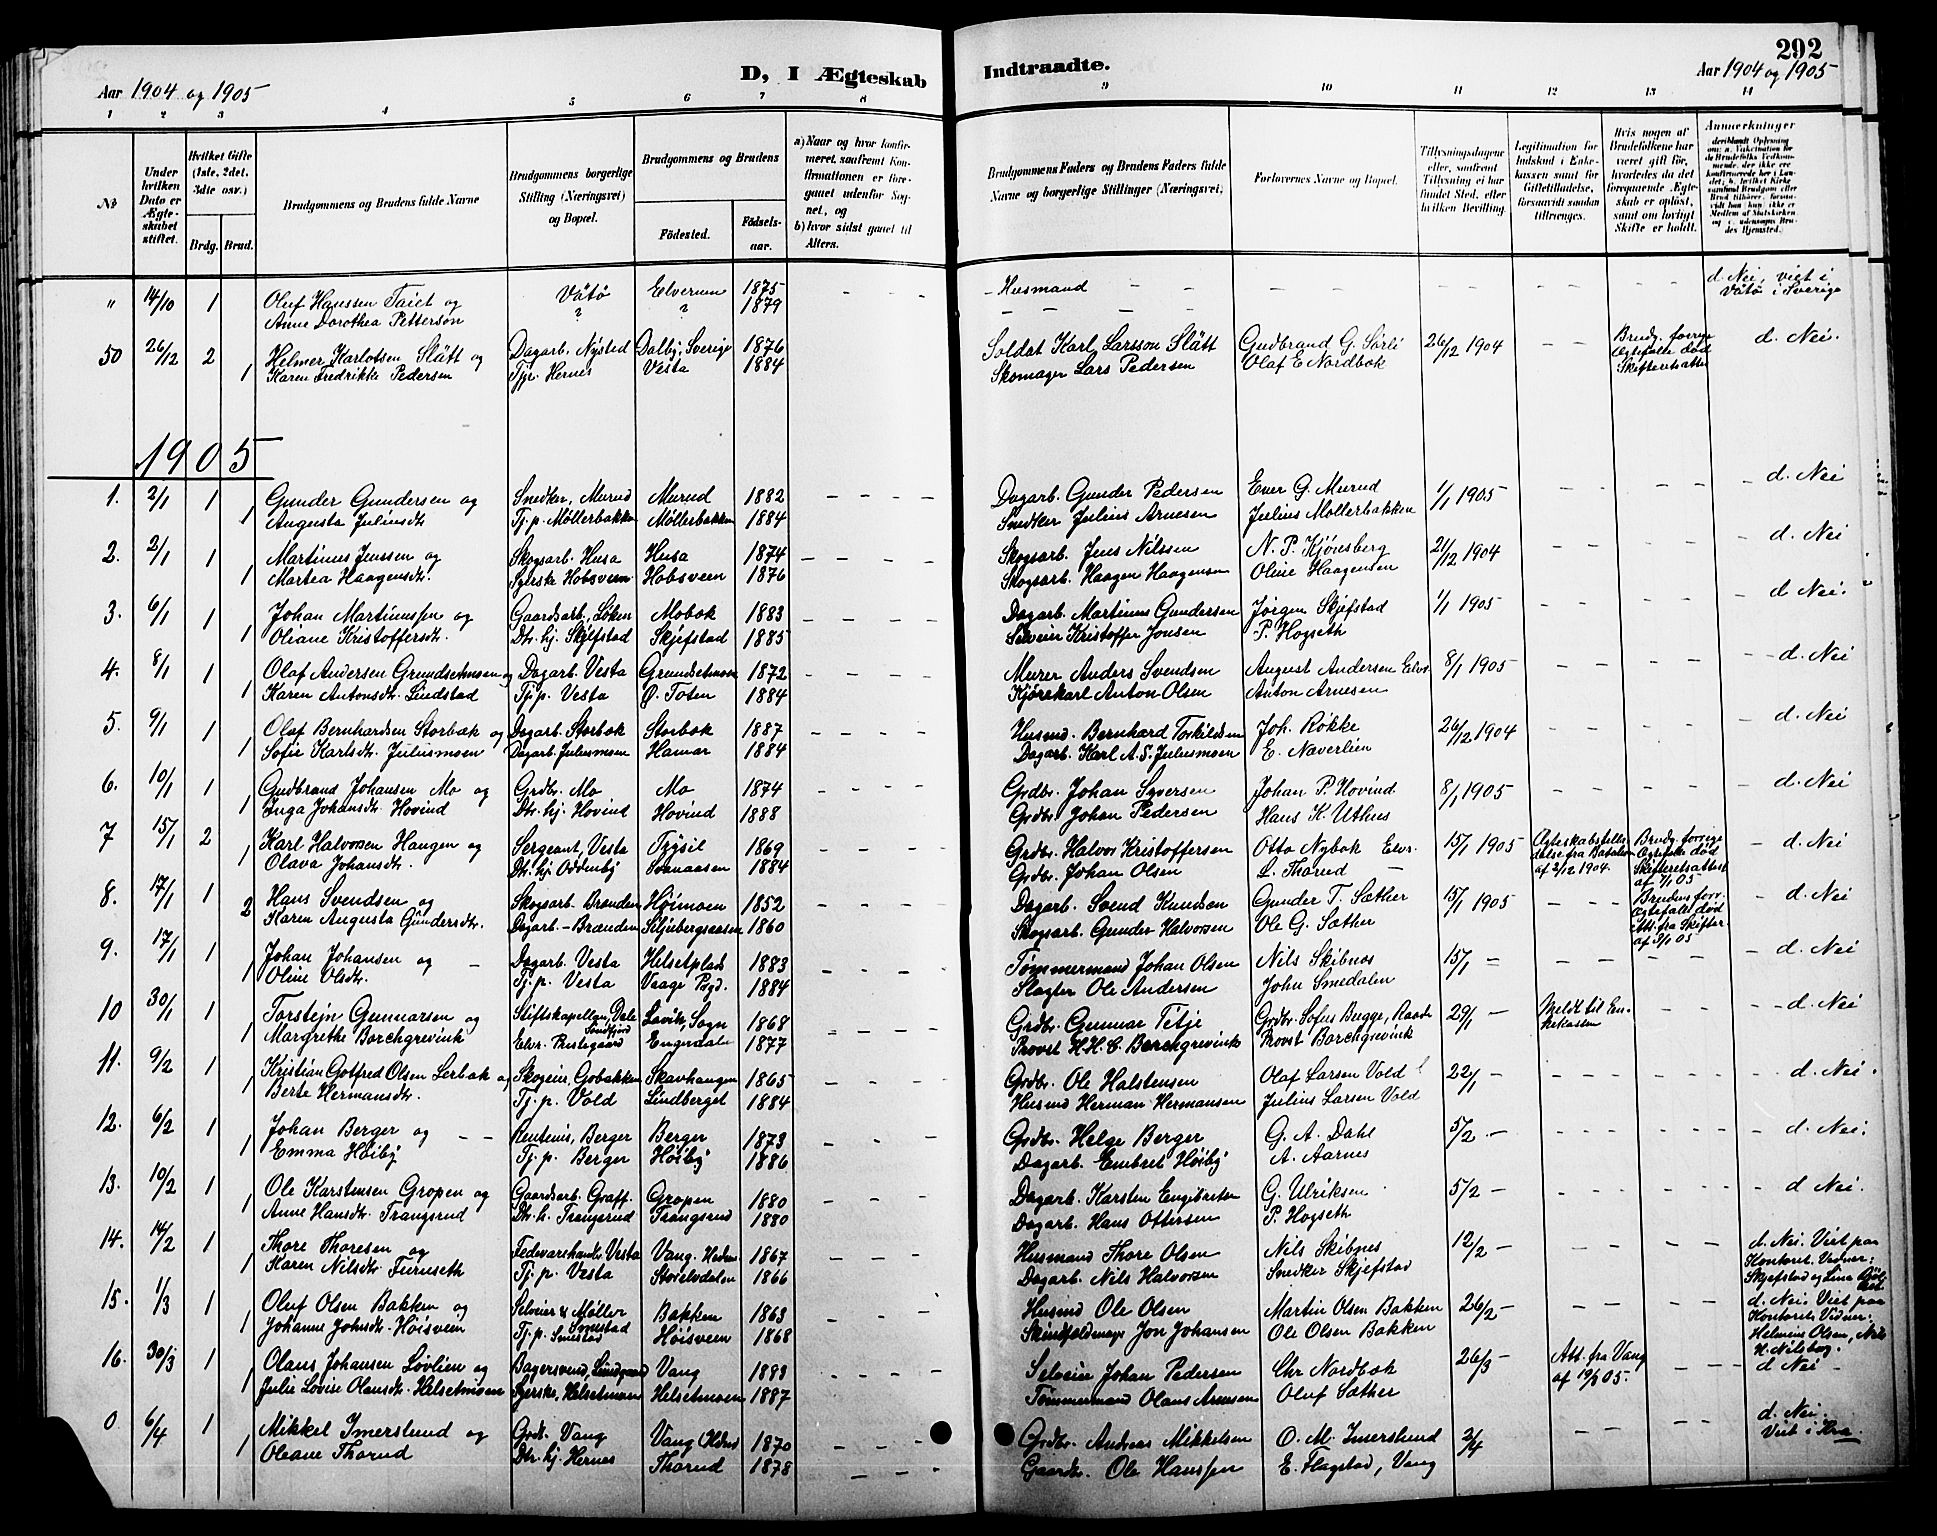 292
D, I Ægteskab Indtraadte.
Aar 1904 og 1905
Aar 1904 og 1905
1 2 3 4 5 6 7 8 9 10 11 12 13 14
No
Under hvilken Dato er Ægteskabet stiftet.
Hvilket Gifte (1ste, 2det, 3dte osv.)
Brdg. Brud.
Brudgommens og Brudens fulde Navne
Brudgommens borgerlige Stilling (Næringsvei) og Bopæl.
Brudgommens og Brudens
Fødested. Fødselsaar.
a) Naar og hvor konfirmeret, saafremt Konfirmationen er foregaaet udenfor Sognet, og
b) hvor sidst gaaet til Alters.
Brudgommens Faders og Brudens Faders fulde Navne og borgerlige Stillinger (Næringsvei)
Forlovernes Navne og Bopæl.
Tillysningsdagene eller, saafremt Tillysning ei har fundet Sted, efter hvilken Bevilling.
Legitimation for Indskud i Enkekassen samt for Giftetilladelse, forsaavidt saadan tiltrænges.
Hvis nogen af Brudefolkene har været gift før, hvorledes da det foregaaende Ægteskab er opløst, samt om lovligt Skifte er holdt.
Anmerkninger
" 14/10 1 Oluf Hanssen Taiet og Vätö Elverum 1875 - - - - Husmand - - - - - - d. Nei, viet i
Anne Dorothea Petterson ? ? 1879 - - - Vätö i Sverige
50 26/12 2 Helmer Karlotsen Slätt og Dagarb. Nysted Dalby, Sverige 1876 Soldat Karl Larsson Slätt Gudbrand G. Sørli 26/12 1904 - - Brudg. forrige Ægtefælle død d. Nei.
1 Karen Fredrikke Pedersen Tjr. Hernes Vesta 1884 Skomager Lars Pedersen Olaf E Nordbok Skifteretsattest
1905
1. 2/1 1 Gunder Gundersen og Snedker, Murud Murud 1882 - - - - Dagarb. Gunder Pedersen Even G. Murud 1/1 1905 - - - - - d. Nei
1 Augusta Juliusdtr. Tj. p. Møllerbakken Møllerbakken 1884 Snedker Julius Arnesen Julius Møllerbakken
2. 2/1 1 Martinus Jenssen og Skogsarb. Husa Husa 1874 - - - - Skogsarb. Jens Nilssen N. P. Kjønsberg 21/12 1904 - - - - - d. Nei
1 Martea Haagensdtr. Syerske Hobsveen Hobsveen 1876 Skogsarb. Haagen Haagensen Oline Haagensen
3. 6/1 1 Johan Martinussen og Gaardsarb, Løken Mobok 1883 - - - - Dagarb. Martinus Gundersen Jørgen Skjefstad 1/1 1905 - - - - - d Nei.
1 Oliane Kristoffersdtr. Dtr. hj. Skjefstad Skjefstad 1885 Selveier Kristoffer Jonsen P. Hogseth
4. 8/1 1 Olaf Andersen Grundsetmoen og Dagarb. Vesta Grundsetmoen 1872 - - - - Murer Anders Svendsen August Andersen Elvr. 8/1 1905 - - - - - d. Nei
1 Karen Antonsdtr. Lindstad Tj. p. Vesta Ø. Toten 1884 Kjørekarl Anton Olsen Anton Arnesen
5. 9/1 1 Olaf Bernhardsen Storbæk og Dagarb. Storbok Storbok 1887 - - - - Husmd. Bernhard Torkildsen Joh. Røkke 26/12 1904 - - - - - d. Nei
1 Sofie Karlsdtr. Juliusmoen Dagarb. Juliusmoen Hamar 1884 Dagarb. Karl A. S. Juliusmoen E. Naverlien
6. 10/1 1 Gudbrand Johansen Mo og Grdbr. Mo Mo 1874 - - - - Grdbr. Johan Syversen Johan P. Hovind 8/1 1905 - - - - - d. Nei
1 Inga Johansdtr. Hovind Dtr. hj. Hovind Hovind 1888 Grdbr. Johan Pedersen Hans K. Uthus
7 15/1 2 Karl Halvorsen Haugen og Sergeant, Vesta Trysil 1869 - - - - Grdbr. Halvor Kristoffersen Otto Nybok Elvr. 15/1 1905 Brudg. forrige Ægtefælle død - d. Nei
1 Olava Johansdtr. Dtr. hj. Oddenby 1884 Grdbr. Johan Olsen L. Thorud - af 2/12 1904. Skifteretsattest af 7/1 05
8. 17/1 1 Hans Svendsen og Skogsarb. Brænden Høimoen 1852 - - - - Dagarb. Svend Knudsen Gunder T. Sæther 15/1 1905 - - - Brudens forr. Ægtefælle død - d. Nei
2 Karen Augusta Gundersdtr. Dagarb. - Brænden Siljubergsaasen 1860 Skogsarb. Gunder Halvorsen Ole G. Sæther Att. fra Skifter. af 3/1 05
9. 17/1 1 Johan Johansen og - Dagarb. Vesta Helsetplads 1883 - - - - Tømmermand Johan Olsen Nils Skibnes 15/1 - - - - - - d. Nei
1 Oline Olsdtr. Tj. p. Vesta Vaage Pgd. 1884 Slagter Ole Andersen John Smedalen
10 30/1 1 Torstein Gunnarsen og Stiftskapellan, Dale Søndfjord Lavik, Sogn 1868 - - - - Grdbr. Gunnar Titje Grdbr. Sofus Bugge, Raade 29/1 - Meldt til Enkekassen - - - d. Nei
1 Margrethe Borchgrevink Elvr. Prestegaard Engerdal 1877 Provst H. H. C. Borchgrevink Provst Borchgrevink
11. 9/2 1 Kristian Gotfred Olsen Lerbak og Skogeier, Gobakken Skavhaugen 1865 - - - - Grdbr. Ole Halstensen Olaf Larsen Vold 22/1 - - - - - - d. Nei.
1 Berte Hermansdtr. Tj. p. Vold Lindberget 1884 Husmd Herman Hermansen Julius Larsen Vold
12. 6/2 1 Johan Berger og - - Berger Berger 1873 - - - - Grdbr. Helge Berger G. A. Dahl 5/2 - - - - - - d. Nei.
1 Emma Høiby Tj. p. Berger Høiby 1886 Dagarb. Embret Høiby A. Aarnes
13. 10/2 1 Ole Karstensen Gropen og Gaardsarb. Graff. Gropen 1880 - - - - Dagarb. Karsten Engebretsen G. Ulriksen 5/2 - - - - - - d Nei.
1 Anne Hansdtr. Trangsrud Dtr. h. Trangsrud Trangsrud 1880 Dagarb. Hans Ottersen P. Hogseth
14. 14/2 1 Thore Thoresen og Fedevarehandl. Vesta Vang. Hedm. 1867 - - - - Husmand Thore Olsen Nils Skibnes 12/2 - - - - - - d. Nei. Viet paa
1 Karen Nilsdtr. Furuseth Tj. p. Vesta Storelvdalen 1866 Dagarb. Nils Halvorsen Snedker Skjefstad Kontoret. Vidner: Skjefstad og Lina
15. 1/3 1 Oluf Olsen Bakken og Selveier & Møller Smestad Bakken 1863 - - - - Husmd Ole Olsen Martin Olsen Bakken 26/2 - - - - - - d. Nei. Viet paa
1 Johanne Johnsdtr. Høisveen Tj. p. Smestad Høisveen 1868 Jon Johansen Ole Olsen Bakken Kontoret. Vidner: Helmine Olsen, Nils H. Nilsbog.
16. 30/3 1 Olaus Johansen Løvlien og Bagersvend, Lundgaard Vang 1883 - - - - Selveier Johan Pedersen Chr Nordbok 26/3 - Att. fra Vang af 19/3 05. - - - d. Nei -
1 Julie Lovise Olausdtr. Helsetmoen Syerske, Helsetmoen Helsetmoen 1887 Tømmermand Olaus Arnesen Oluf Sæther
0 6/4 1 Mikkel Imerslund og Grdbr. Vang Vang (Hedm 1870 - - - - Grdbr. Andreas Mikkelsen O. M. Imerslund 2/4 - - - - d. Nei.
1 Oleane Thorud Dtr. hj. Hernes Thorud 1878 - - - Gaardbr. Ole Hanssen E. Flagstad, Vang Viet i Kra